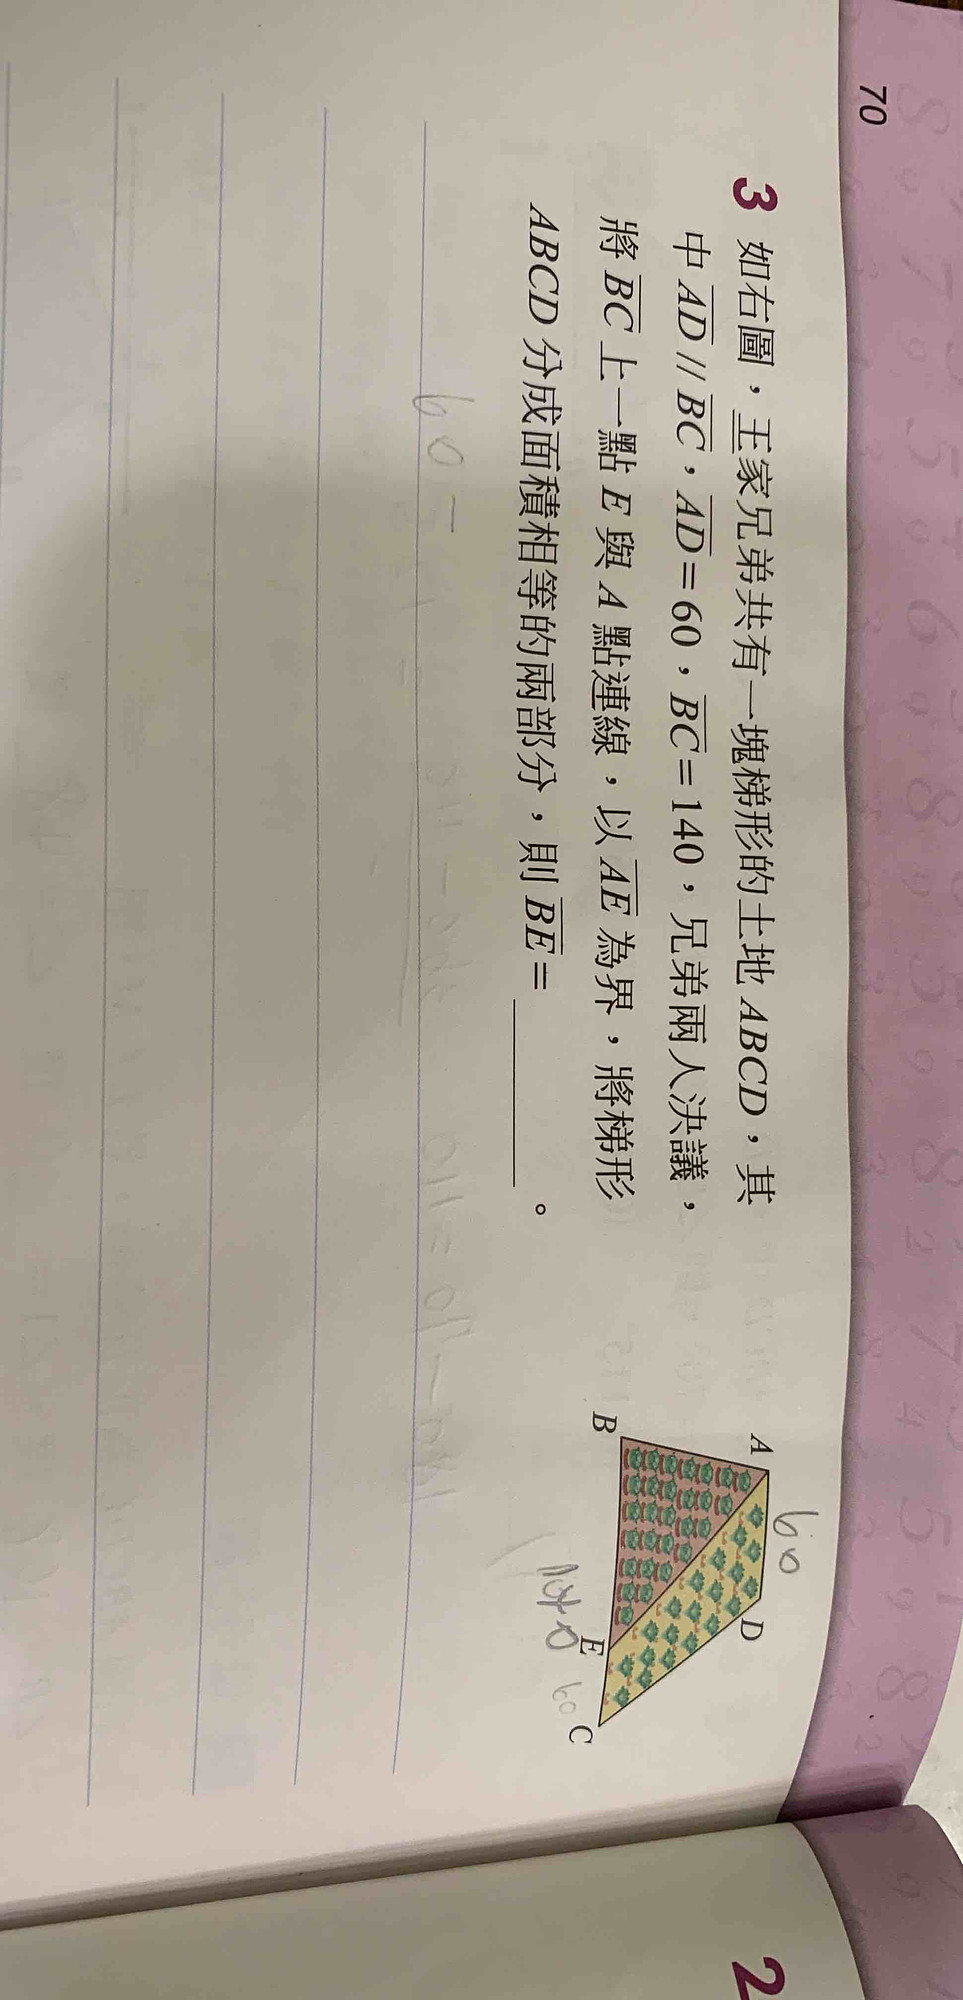 70
3 如右圖，王家兄弟共有一塊梯形的土地ABCD，其
中AD//BC，AD=60，BC=140，兄弟兩人決議，
將BC上一點E與A點連線，以AE為界，將梯形
ABCD分成面積相等的兩部分，則BE=＿＿＿＿。
60
A
D
B
E
C
60
60－
2